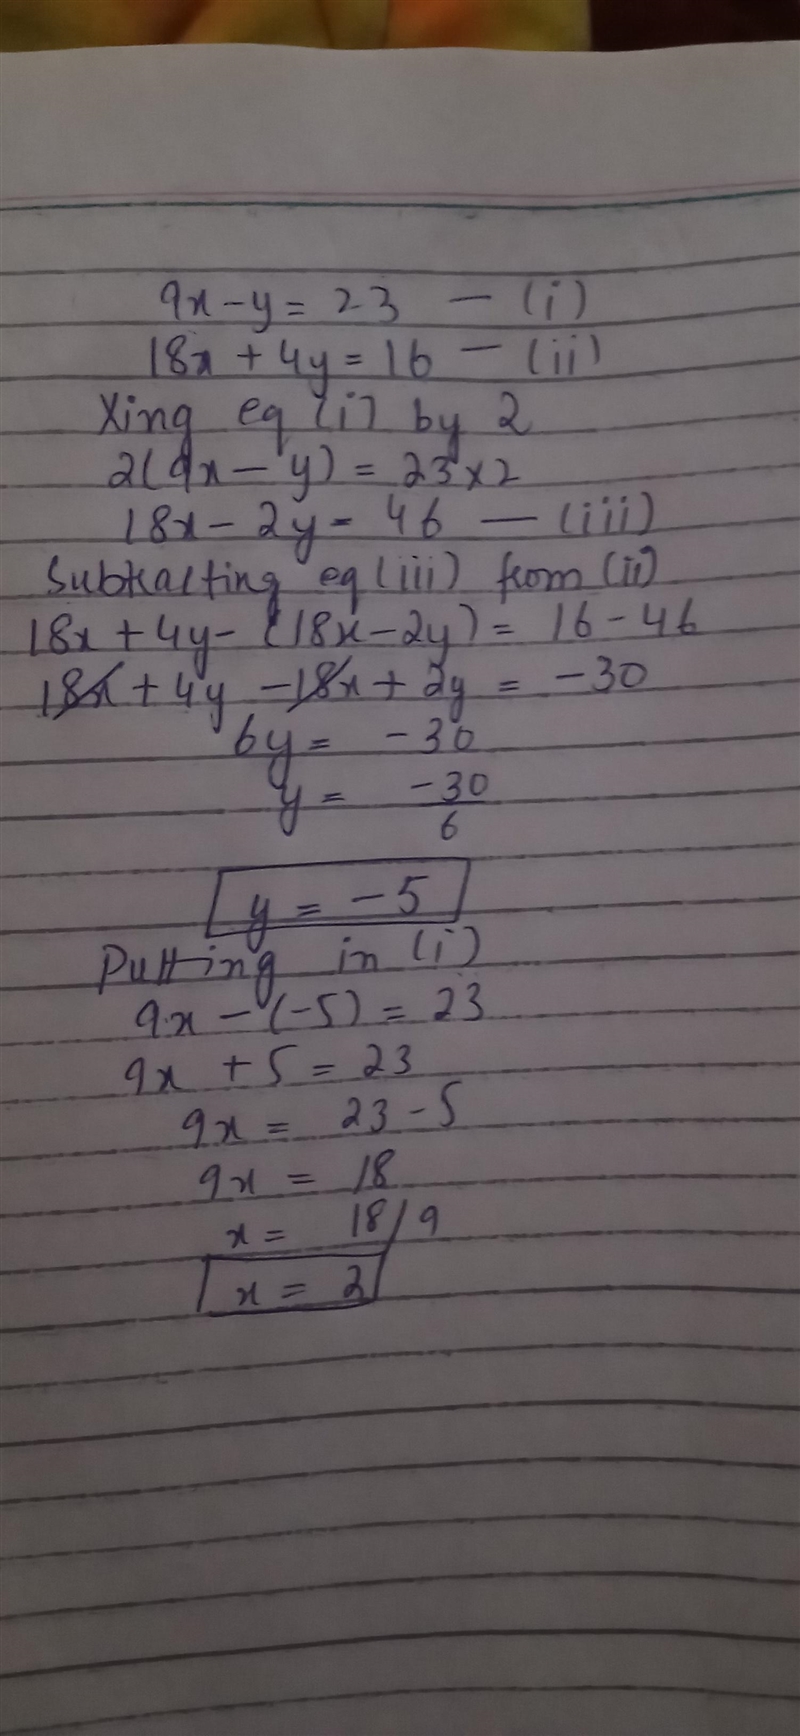 9x - y = 23 - (i)
18x + 4y = 16 - (ii)
Xing eq (i) by 2
2(9x - y) = 23 x 2
18x - 2y = 46 - (iii)
Subtracting eq (iii) from (ii)
18x + 4y - (18x - 2y) = 16 - 46
18x + 4y - 18x + 2y = -30
6y = -30
y = -30/6
y = -5
Putting in (i)
9x - (-5) = 23
9x + 5 = 23
9x = 23 - 5
9x = 18
x = 18/9
x = 2